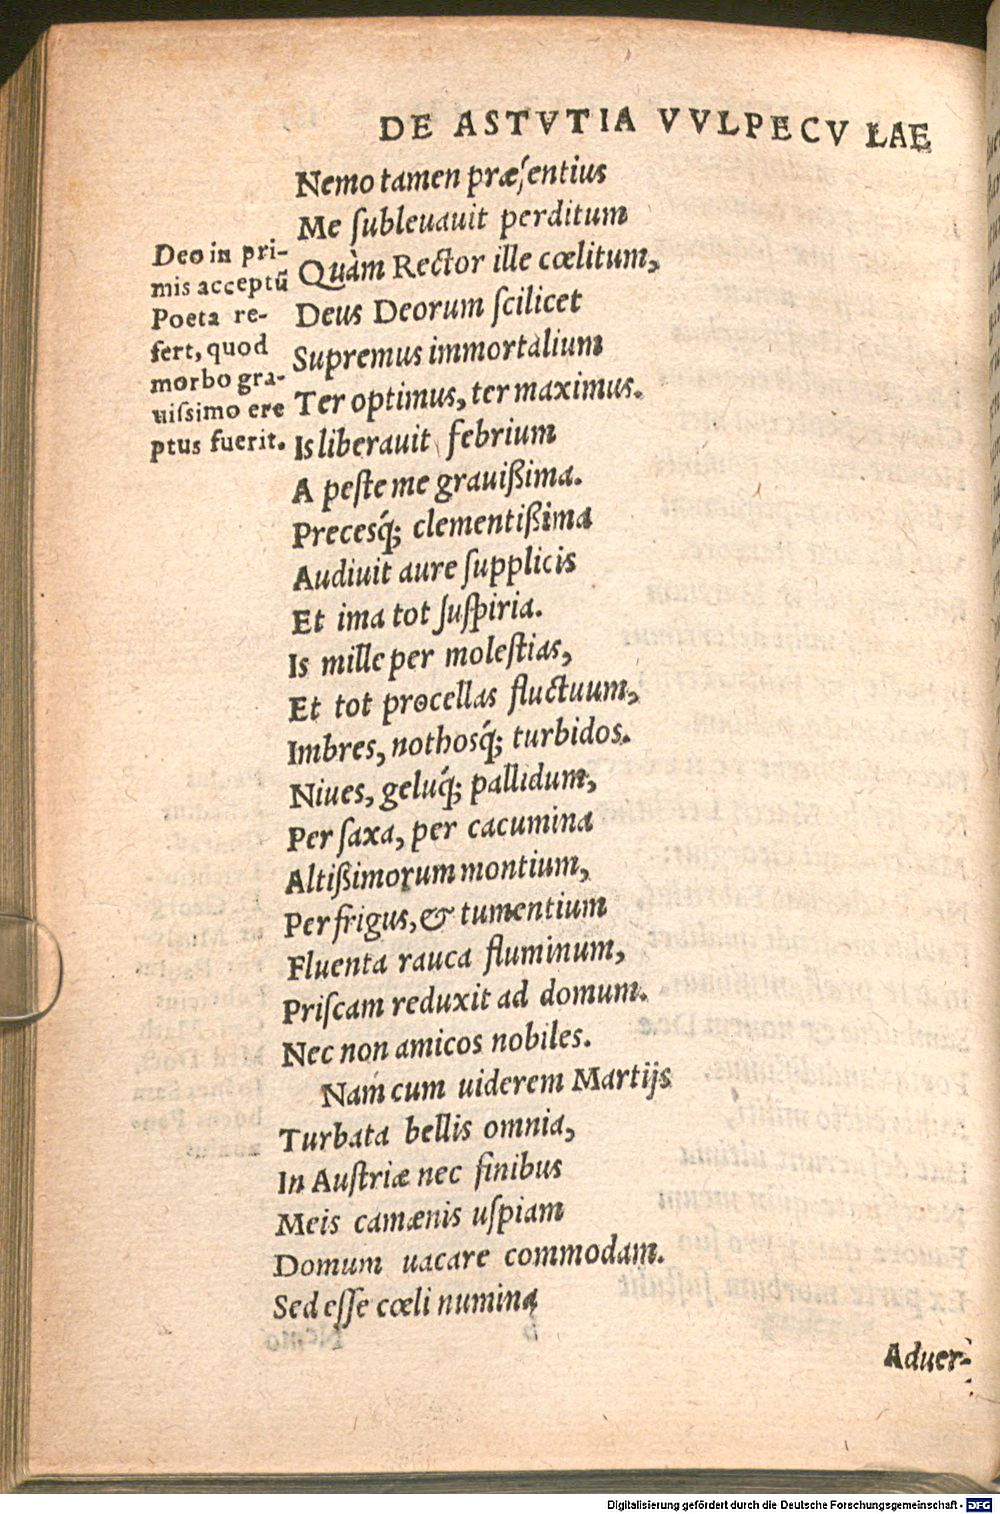 DE ASTVTIA VVLPECV LAE
Nemo tamen præſentius
Me ſubleuauit perditum
Quàm Rector ille cœlitum,
Deus Deorum ſcilicet
Supremus immortalium
Ter optimus, ter maximus.
Is liberauit febrium
A peſte me grauißima.
Precesq́; clementißima
Audiuit aure ſupplicis
Et ima tot ſuſpiria.
Is mille per moleſtias,
Et tot procellas fluctuum,
Imbres, nothosq́; turbidos.
Niues, geluq́; pallidum,
Per ſaxa, per cacumina
Altißimorum montium,
Per frigus, & tumentium
Fluenta rauca fluminum,
Priſcam reduxit ad domum.
Nec non amicos nobiles.
Nam cum uiderem Martijs
Turbata bellis omnia,
In Auſtriæ nec finibus
Meis camænis uſpiam
Domum uacare commodam.
Sed eſſe cœli numina
Deo in pri-
mis acceptũ
Poeta re-
fert, quod
morbo gra-
uiſsimo ere
ptus fuerit.
Aduer-
Digitalisierung gefördert durch die Deutsche Forschungsgemeinschaft - DFG